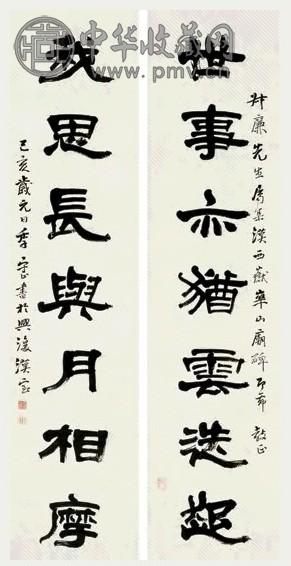 中华收藏网
www.pmv.cn
廉先生屬集漢西嶽華山廟碑即希教正
世事亦猶雲迭起
我思長與月相摩
己亥歲元日季守正書於興復漢室